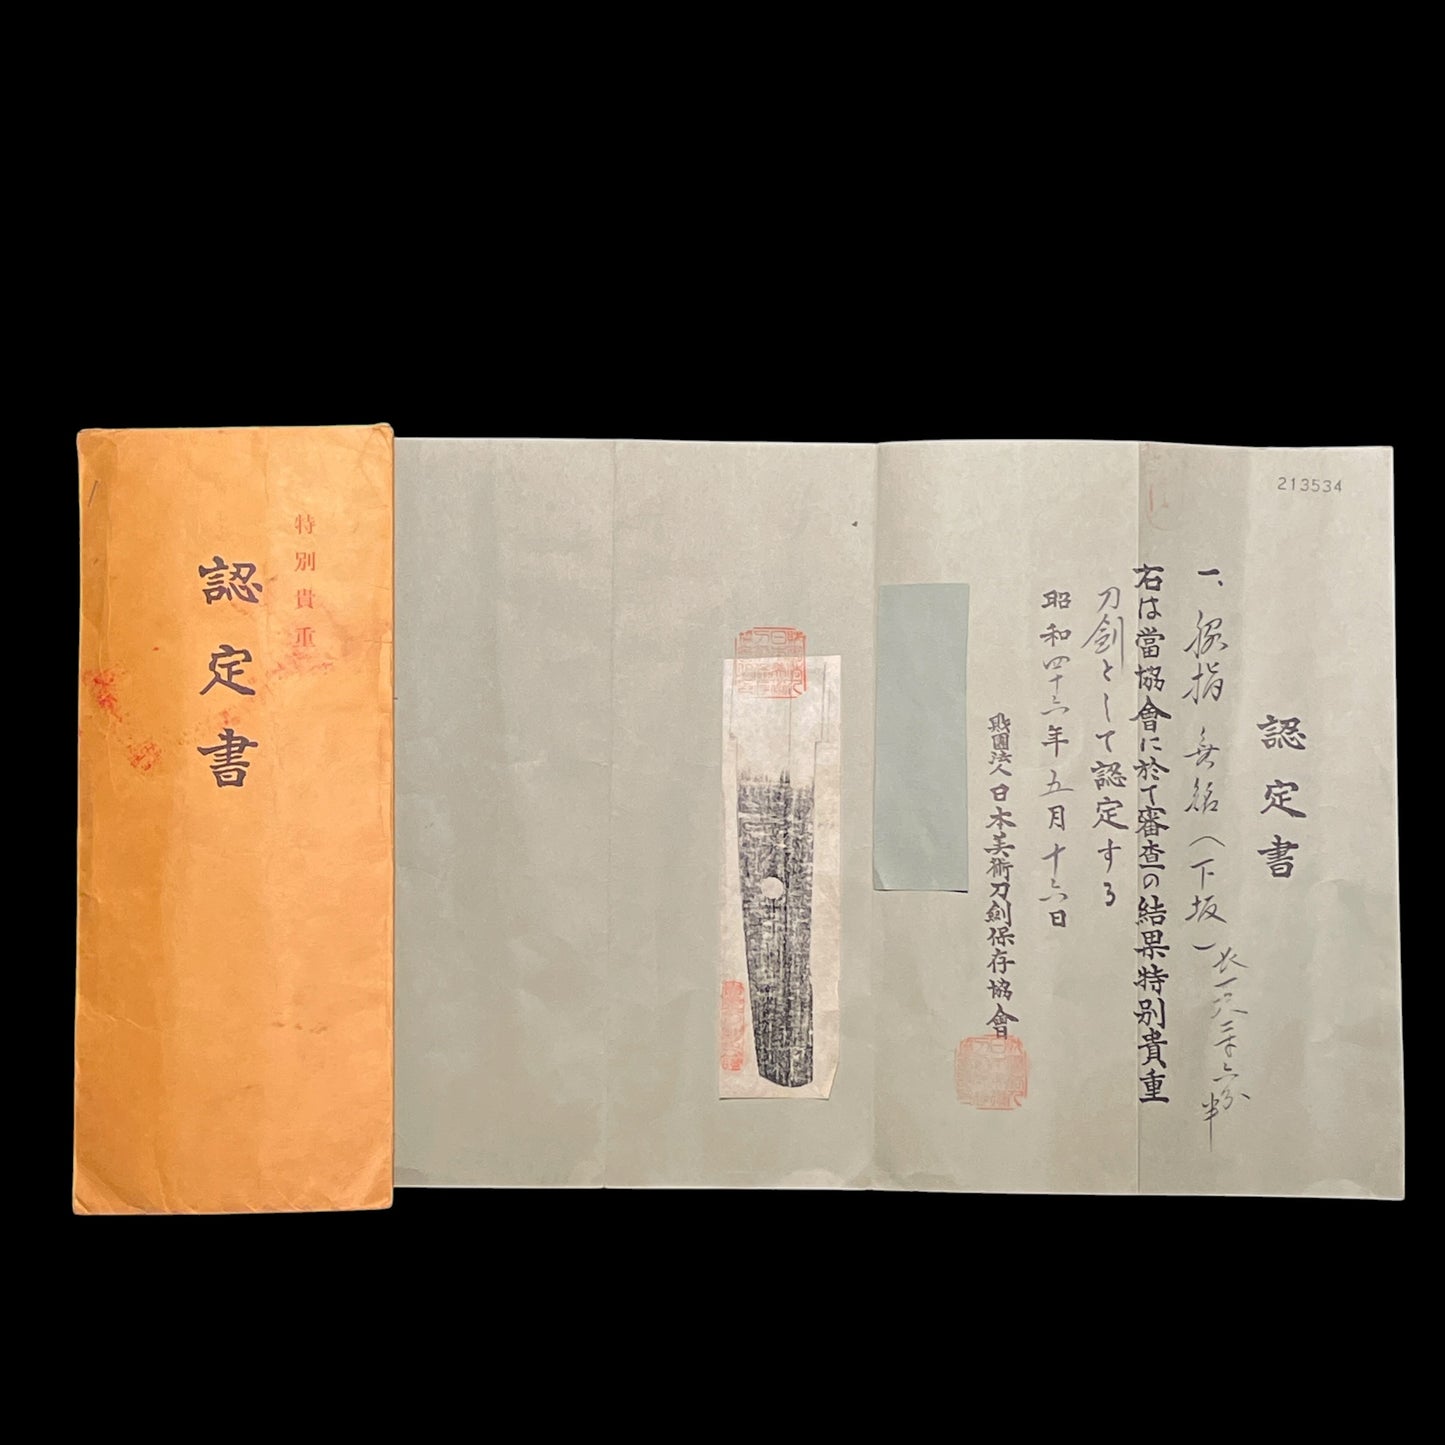 特別貴重
認定書
213534
認定書
一、脇指 無銘(下坂)
長一尺三寸六分半
右は當協會に於て審査の結果特別貴重
刀劍として認定する
昭和四十三年五月十六日
財團法人日本美術刀劍保存協會